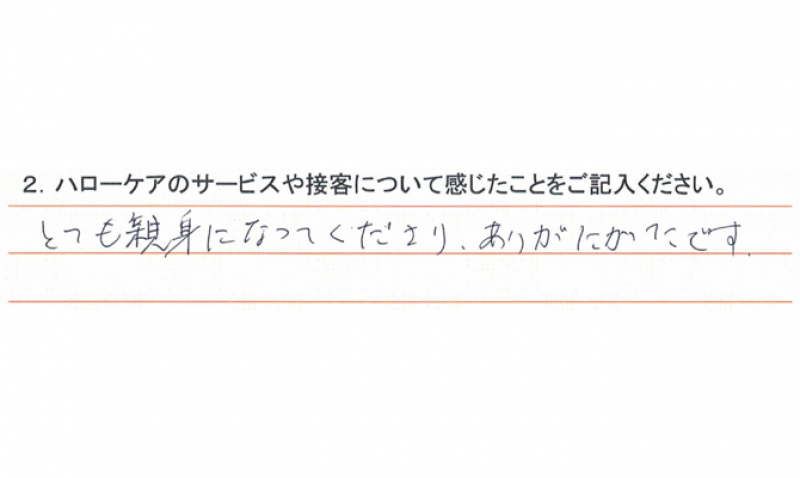 2. ハローケアのサービスや接客について感じたことをご記入ください。
とても親身になってくださり、ありがたかったです.